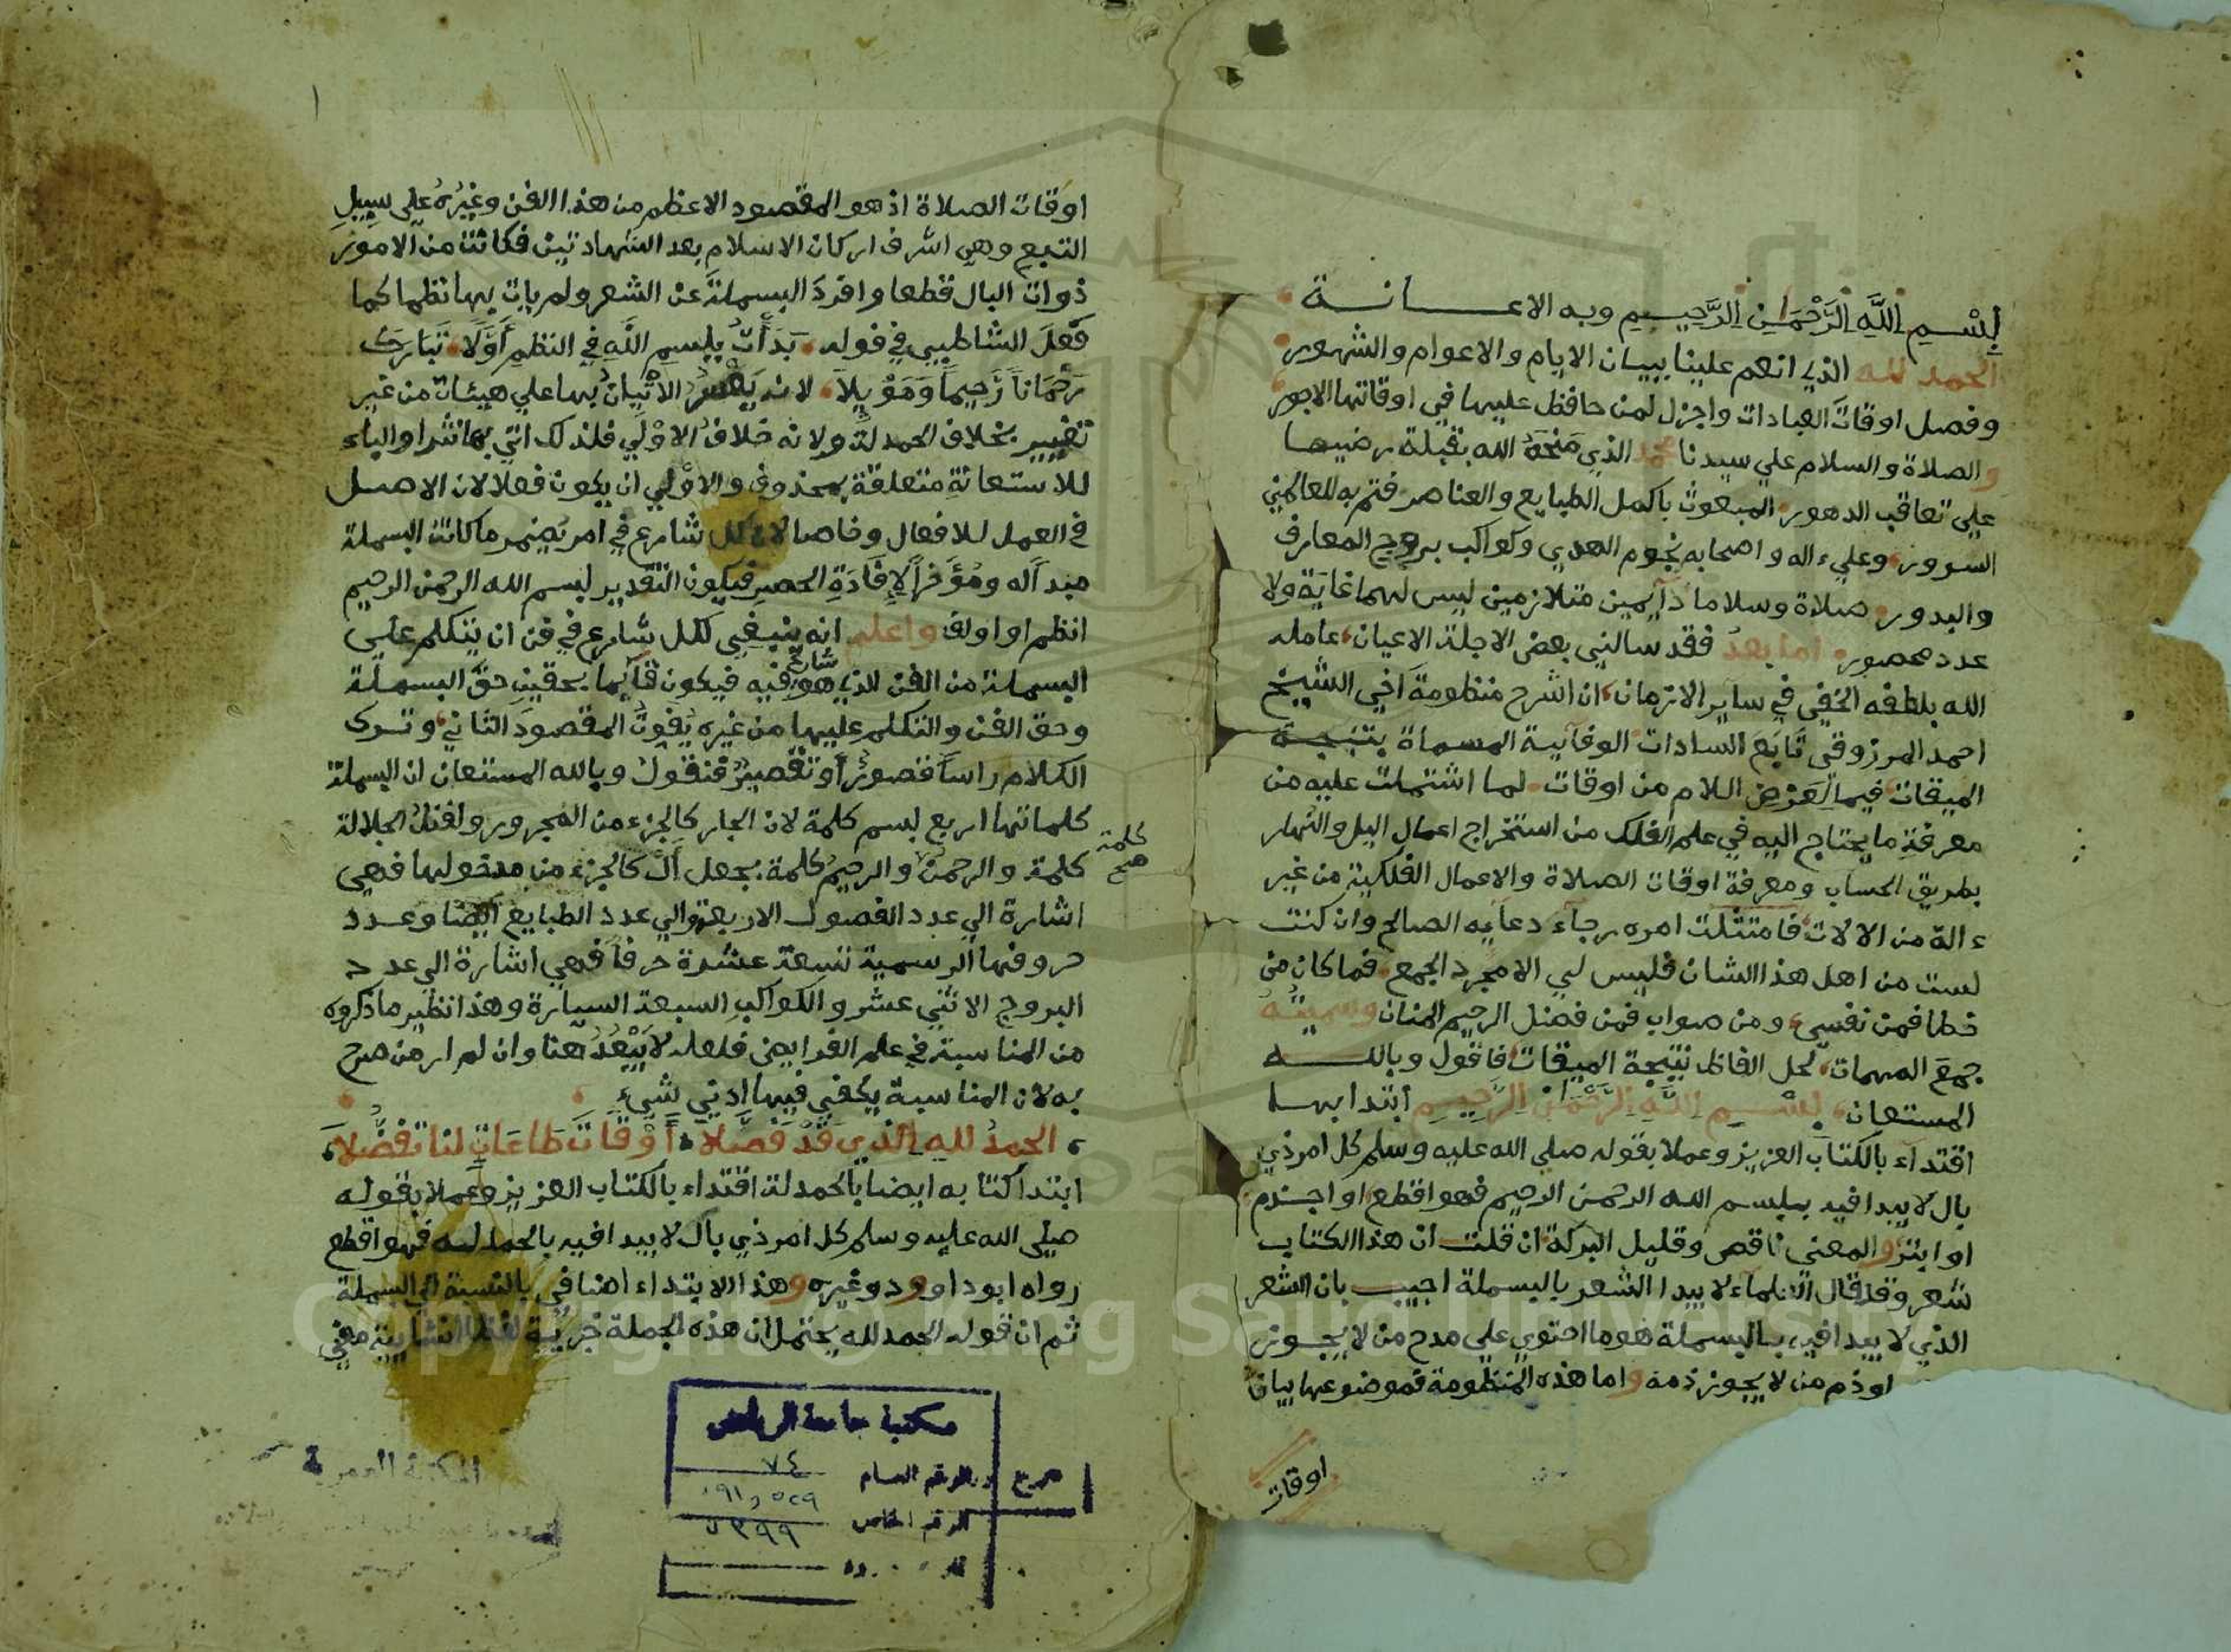 بِسْمِ اللَّهِ الرَّحْمَانِ الرَّحِيمِ وبه الاعانة
الحمد لله الذي انعم علينا ببيان الايام والاعوام والشهور
وفصل اوقات العبادات واجزل لمن حافظ عليها في اوقاتها الاجور
والصلاة والسلام علي سيدنا محمد الذي مَنحَهُ الله بقبلة رضيها
علي تعاقب الدهور المبعوث باكمل الطبايع والعناصر فتم به للعالمين
السرور وعلي اله واصحابه نجوم الهدي وكواكب بروج المعارف
والبدور صلاة وسلاما دآيمين متلازمين ليس لهما غاية ولا
عدد محصور اما بعد فقد سالني بعض الاجلة الاعيان عامله
الله بلطفه الخفي في ساير الازمان ان اشرح منظومة اخي الشيخ
احمد المرزوقي تَابَع السادات الوفآيية المسماة بنتيجة
الميقات فيما لعَرْض اللام من اوقات لما اشتملت عليه من
معرفة ما يحتاج اليه في علم الفلك من استخراج اعمال اليل والنهار
بطريق الحساب ومعرفة اوقات الصلاة والاعمال الفلكية من غير
ءالة من الالات فامتثلت امره رجآء دعآيه الصالح وان كنت
لست من اهل هذا الشان فليس لي الا مجرد الجمع فما كان من
خطا فمن نفسي ومن صواب فمن فضل الرحيم المنان وسميته
جمعَ المهمات لحل الفاظ نتيجة الميقات فاقول وبالله
المستعان بِسْمِ اللَّهِ الرَّحْمَانِ الرَّحِيمِ ابتدا بها
اقتدآء بالكتاب العزيز وعملا بقوله صلي الله عليه وسلم كل امر ذي
بال لا يبدا فيه ببسم الله الرحمن الرحيم فهو اقطع او اجذم
او ابتر والمعني ناقص وقليل البركة ان قلت ان هذا الكتاب
شعر وقد قال العلمآء لا يبدا الشعر بالبسملة اجيب بان الشعر
الذي لا يبدا فيه بالبسملة هو ما احتوي علي مدح من لا يجوز
او ذم من لا يجوز ذمه واما هذه المنظومة فموضوعها بيان
اوقات
اوقات الصلاة اذ هو المقصود الاعظم من هذا الفن وغيرُهُ علي سبيل
التبع وهي اشرف اركان الاسلام بعد الشهادتين فكانت من الامور
ذوات البال قطعا وافردَ البسملةَ عن الشعر ولم يات بها نظما كما
فَعَلَ الشاطبي في قوله بَدَأتُ بِبسمِ اللَّهِ في النظمِ أَوَّلًا تَبَارَكَ
رَحْمَاناً رَّحِيماً وَمَوْيِلاَ لانه الاتْيَانُ بها علي هيئات من غير
تغيير بخلاف الحمدلة ولانه خلافُ الاوْلَي فلذلك اتي بها نثرا والباء
للاستعانةِ متعلقة بمحذوف والاوْلي ان يكون فعلا لان الاصل
في العمل للافعال وخاصا لان كل شارع في امر يضمر ما كانت البسملة
مبدأ له ومُؤَخراً لإفَادَةِ الحصرِ فيكون التقدير بسم الله الرحمن الرحيم
انظم او اولف واعلم انه ينبغي لكل شارع في فن ان يتكلم علي
البسملة من الفن الذي هو شارع فيه فيكون قآيما بحقين حق البسملة
وحق الفن والتكلم عليها من غيره يُفوِتُ المقصودَ الثاني وترك
الكلام راسا قصورٌ أو تقصيرٌ فنقول وبالله المستعان ان البسملة
كلماتها اربع بسم كلمة لان الجار كالجزء من المجرور ولفظ الجلالة
كلمة صح
كلمة والرحمن والرحيم كلمة بجعل اَلْ كالجزء من مدخولها فهي
اشارة الي عدد الفصول الاربعة والي عدد الطبايع ايضا وعدد
حروفها الرسمية تسعة عشرة حرفاً فهي اشارة الي عدد
البروج الاثني عشر والكواكب السبعة السيارة وهذا نظير ما ذكروه
من المناسبة في علم الفرايض فلعله لا يَبْعُدُ هنا وان لم ار من صرح
به لان المناسبة يكفي فيها ادني شيء
الحمدُ للهِ الذي قَدْ فَصَّلاَ أَوْقَاتَ طَاعَاتٍ لنا تفضُّلاَ
ابتدا كتابه ايضا بالحمدلة اقتداء بالكتاب العزيز وعملا بقوله
صلي الله عليه وسلم كل امر ذي بال لا يبدا فيه بالحمد لله فهو اقطع
رواه ابو داوود وغيره وهذا الابتداء اضافي بالنسبة الي البسملة
ثم ان قوله الحمد لله يحتمل ان هذه الجملة خبرية لفظا انشايية معني
مكتبة جامعة الرياض
الرقم العام ٧٤
الرقم الخاص
المكتبة العمرية
Copyright © King Saud University